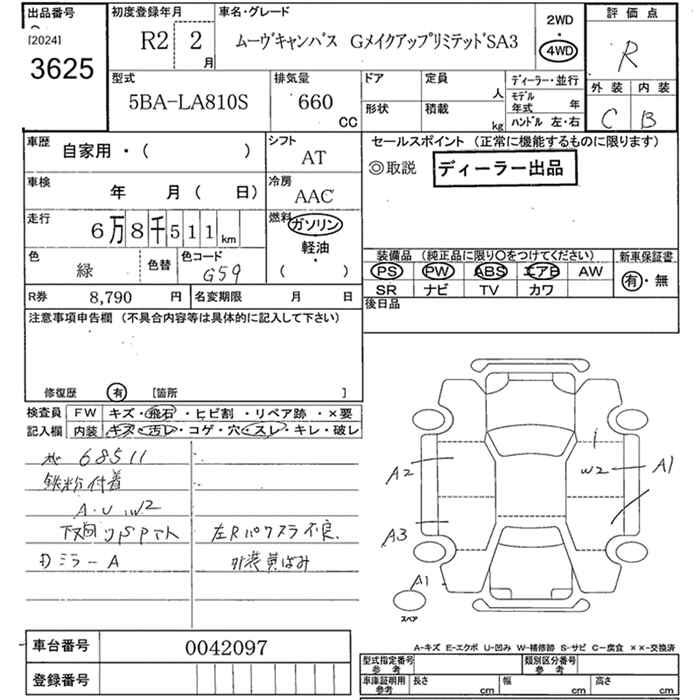 出品番号
[2024]
3625
初度登録年月
R2 2 月
車名・グレード
ムーヴキャンバス GメイクアップリミテッドSA3
2WD
・
4WD
評価点
R
外装 内装
C B
型式
5BA-LA810S
排気量
660 CC
ドア
形状
定員 人
積載 kg
ディーラー・並行
モデル年式 年
ハンドル 左・右
車歴 自家用・( )
シフト AT
車検 年 月( 日)
冷房 AAC
走行 6万8千511km
燃料 ガソリン
軽油
・
( )
色 緑
色替
色コード G59
R券 8,790 円
名変期限 月 日
セールスポイント(正常に機能するものに限ります)
◎取説 ディーラー出品
装備品(純正品に限り○をつけてください)
PS PW ABS エアB AW
SR ナビ TV カワ
新車保証書
有・無
後日品
注意事項申告欄(不具合内容等は具体的に記入して下さい)
修復歴 有 [箇所 ]
検査員記入欄
FW キズ・飛石・ヒビ割・リペア跡・×要
内装 キズ・汚レ・コゲ・穴・スレ・キレ・破レ
68511
鉄粉付着
A・U W2
下廻りサビ
左Rパワスラ不良
Dミラー A
外装黄ばみ
A2
A3
A1
W2
A1
スペア
A-キズ E-エクボ U-凹み W-補修跡 S-サビ C-腐食 ××-交換済
車台番号 0042097
登録番号
型式指定番号 参考
類別区分番号 参考
車庫証明用 参考
長さ cm
幅 cm
高さ cm